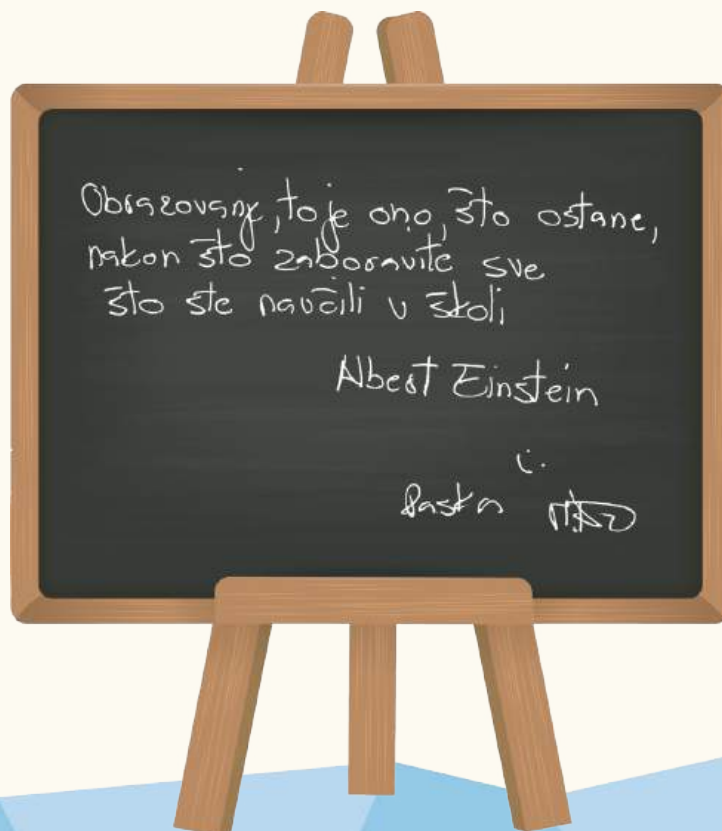 Obrazovanje, to je ono, što ostane,
nakon što zaboravite sve
što ste naučili u školi
Albert Einstein
i.